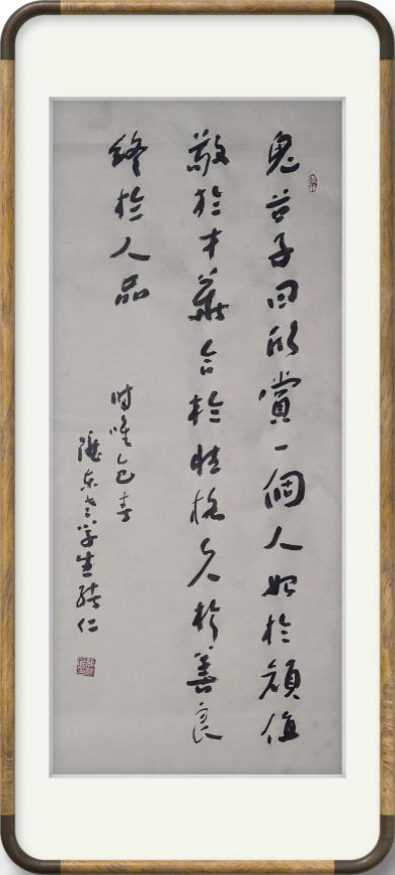 鬼谷子曰欣賞一個人始於顏值
敬於才華合於性格久於善良
終於人品
時唯乙巳春
東老學生
仁